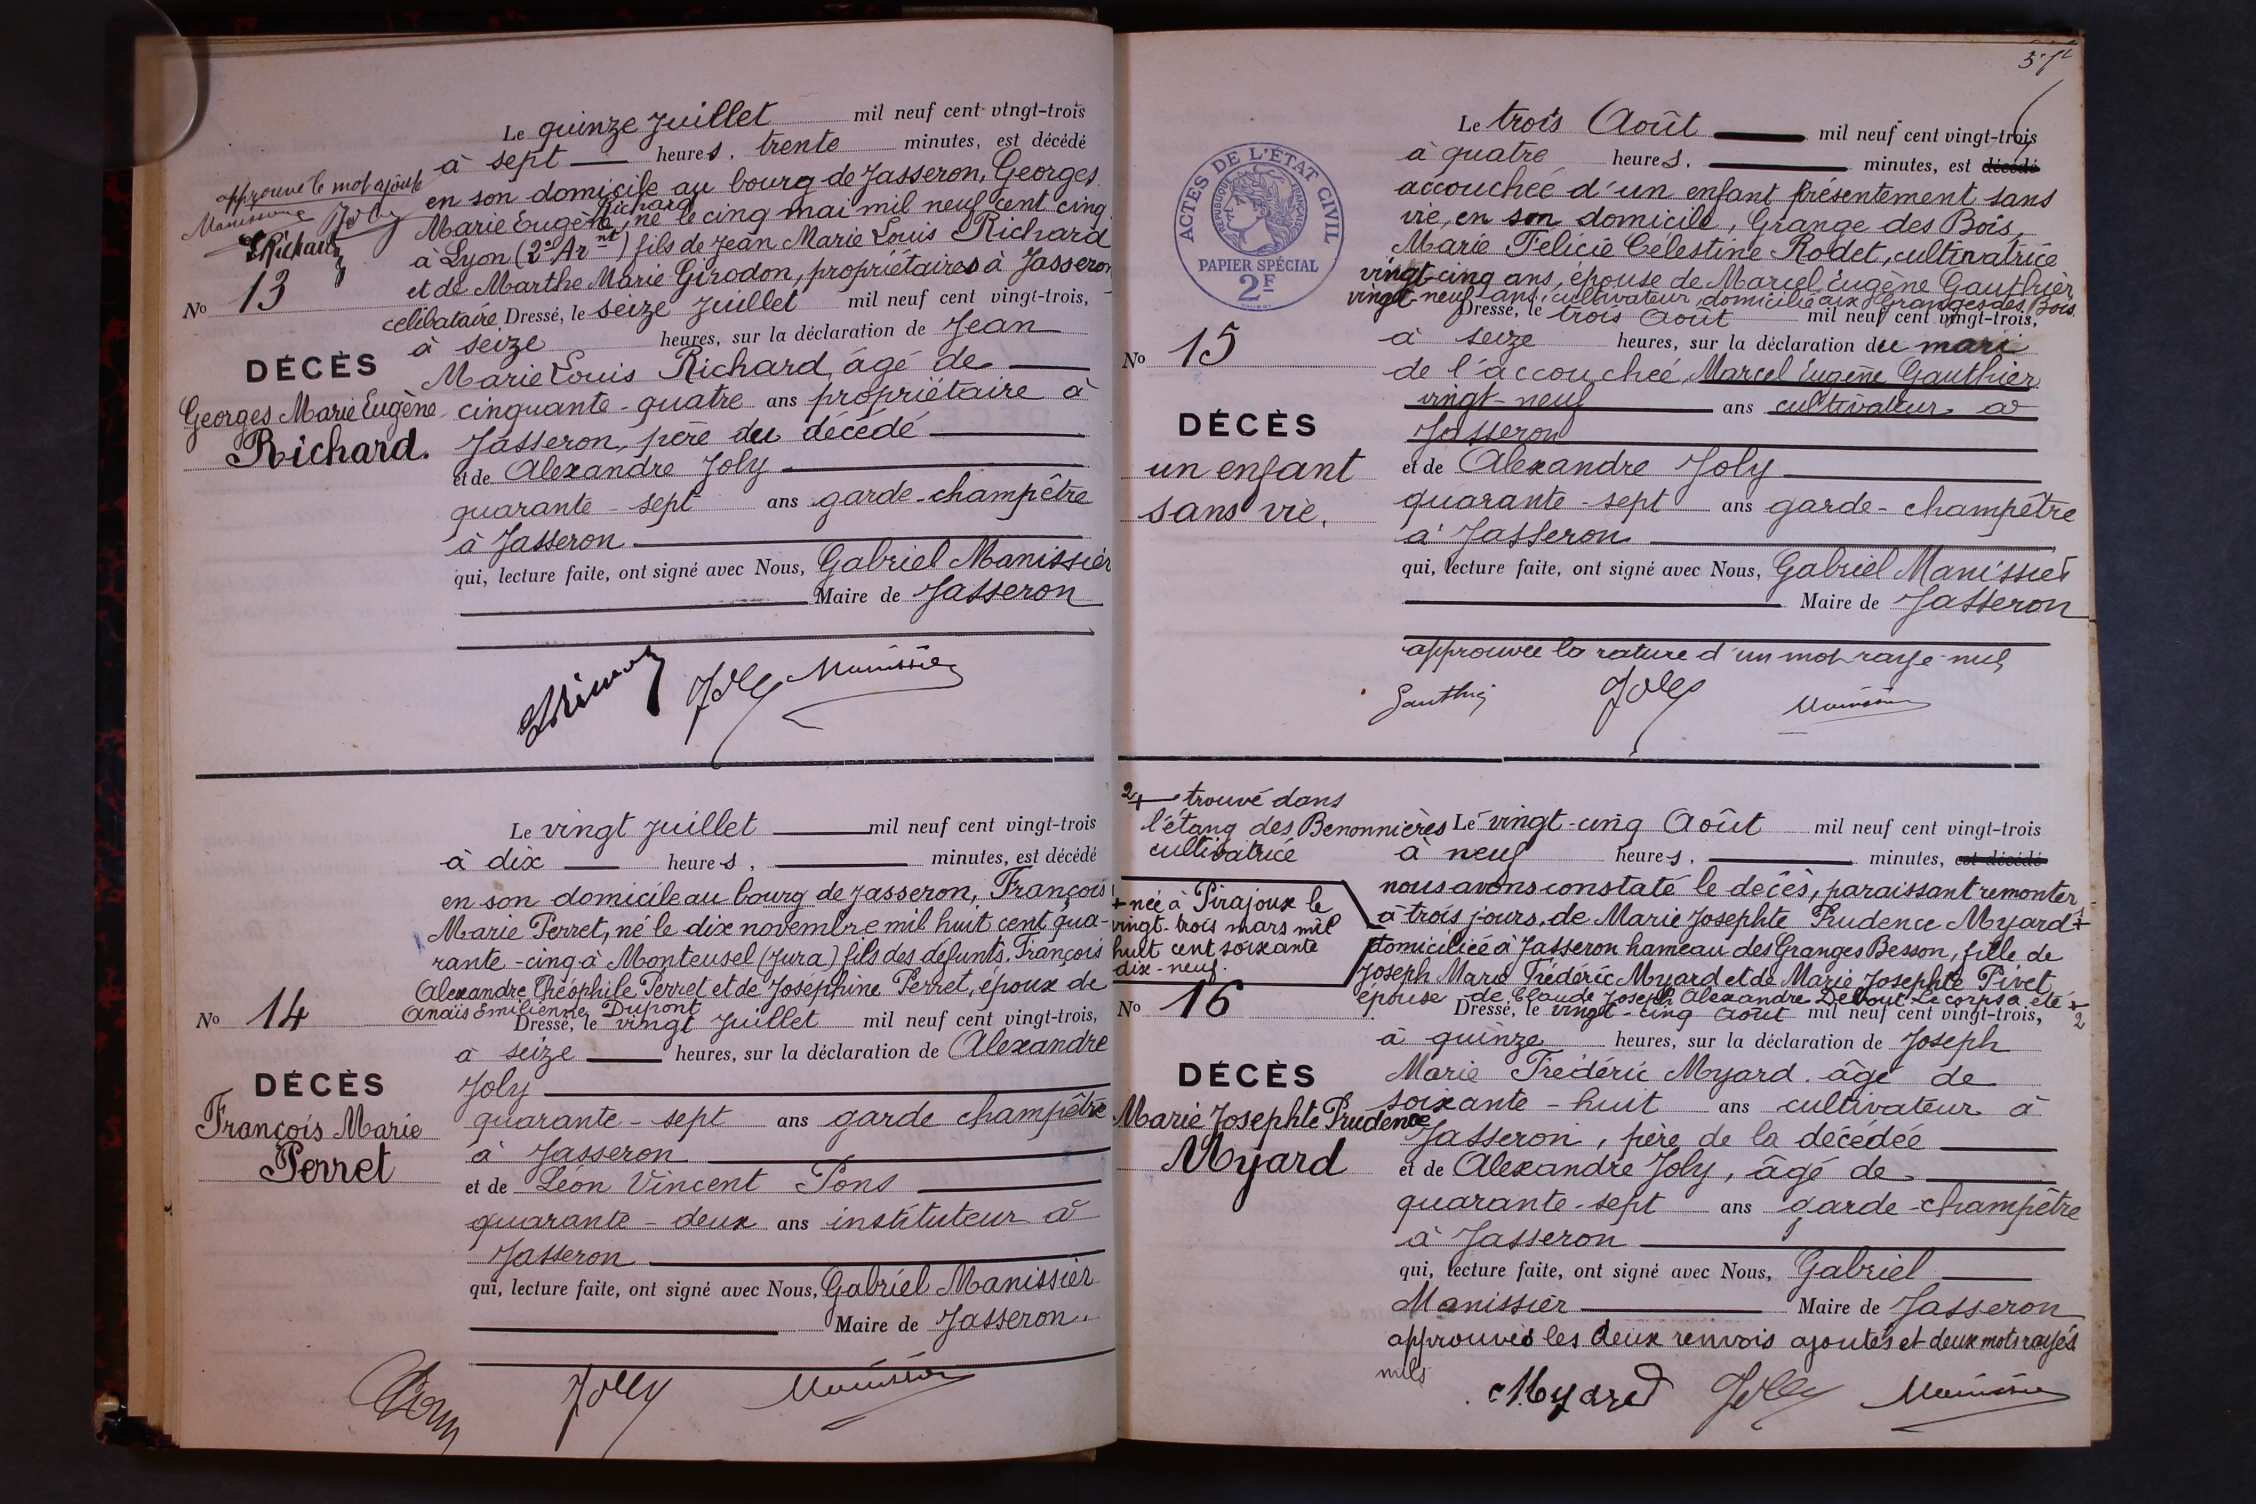 Le quinze Juillet mil neuf cent vingt-trois
à sept heures, trente minutes, est décédé
en son domicile au bourg de Jasseron, Georges
Richard
Marie Eugène, né le cinq mai mil neuf cent cinq
à Lyon (2e Ar nt) fils de Jean Marie Louis Richard
et de Marthe Marie Girodon, propriétaires à Jasseron
célibataire. Dressé, le seize Juillet mil neuf cent vingt-trois,
à seize heures, sur la déclaration de Jean
Marie Louis Richard, âgé de
cinquante-quatre ans propriétaire à
Jasseron, père du décédé
et de Alexandre Joly
quarante-sept ans garde-champêtre
à Jasseron
qui, lecture faite, ont signé avec Nous, Gabriel Manissier
Maire de Jasseron
approuvé le mot ajouté
Manissier Joly
Richard
No 13
DÉCÈS
Georges Marie Eugène
Richard.
Joly Manissier
Le vingt Juillet mil neuf cent vingt-trois
à dix heures, minutes, est décédé
en son domicile au bourg de Jasseron, François
Marie Perret, né le dix novembre mil huit cent qua-
rante-cinq à Monteusel (Jura) fils des défunts, François
Alexandre Théophile Perret et de Joséphine Perret, époux de
Anaïs Emilienne Dupont
Dressé, le vingt Juillet mil neuf cent vingt-trois,
à seize heures, sur la déclaration de Alexandre
Joly
quarante-sept ans garde champêtre
à Jasseron
et de Léon Vincent Pons
quarante-deux ans instituteur à
Jasseron
qui, lecture faite, ont signé avec Nous, Gabriel Manissier
Maire de Jasseron.
No 14
DÉCÈS
François Marie
Perret
Joly Manissier
ACTES DE L'ÉTAT CIVIL
RÉPUBLIQUE FRANÇAISE
PAPIER SPÉCIAL
2F
Le trois Août mil neuf cent vingt-trois
à quatre heures, minutes, est décédé
accouchée d'un enfant présentement sans
vie, en son domicile, Grange des Bois,
Marie Felicie Celestine Rodet, cultivatrice
vingt-cinq ans, épouse de Marcel Eugène Gauthier
vingt-neuf ans, cultivateur, domicilié aux Granges des Bois.
Dressé, le trois Août mil neuf cent vingt-trois,
à seize heures, sur la déclaration du mari
de l'accouchée, Marcel Eugène Gauthier
vingt-neuf ans cultivateur à
Jasseron
et de Alexandre Joly
quarante-sept ans garde-champêtre
à Jasseron
qui, lecture faite, ont signé avec Nous, Gabriel Manissier
Maire de Jasseron
approuvée la rature d'un mot rayé nul
Gauthier Joly Manissier
No 15
DÉCÈS
un enfant
sans vie.
2+ trouvé dans
l'étang des Benonnières
cultivatrice
+ née à Pirajoux le
vingt-trois mars mil
huit cent soixante
dix-neuf.
Le vingt-cinq Août mil neuf cent vingt-trois
à neuf heures, minutes, est décédé
nous avons constaté le décès, paraissant remonter
à trois jours, de Marie Josephte Prudence Myard +
domiciliée à Jasseron hameau des Granges Besson, fille de
Joseph Marie Frédéric Myard et de Marie Josephte Pivet
épouse de Claude Joseph Alexandre Debout. Le corps a été +2
Dressé, le vingt-cinq Août mil neuf cent vingt-trois,
à quinze heures, sur la déclaration de Joseph
Marie Frédéric Myard. âgé de
soixante-huit ans cultivateur à
Jasseron, père de la décédée
et de Alexandre Joly, âgé de
quarante-sept ans garde-champêtre
à Jasseron
qui, lecture faite, ont signé avec Nous, Gabriel
Manissier Maire de Jasseron
approuvés les deux renvois ajoutés et deux mots rayés
nuls
No 16
DÉCÈS
Marie Josephte Prudence
Myard
Myard Joly Manissier